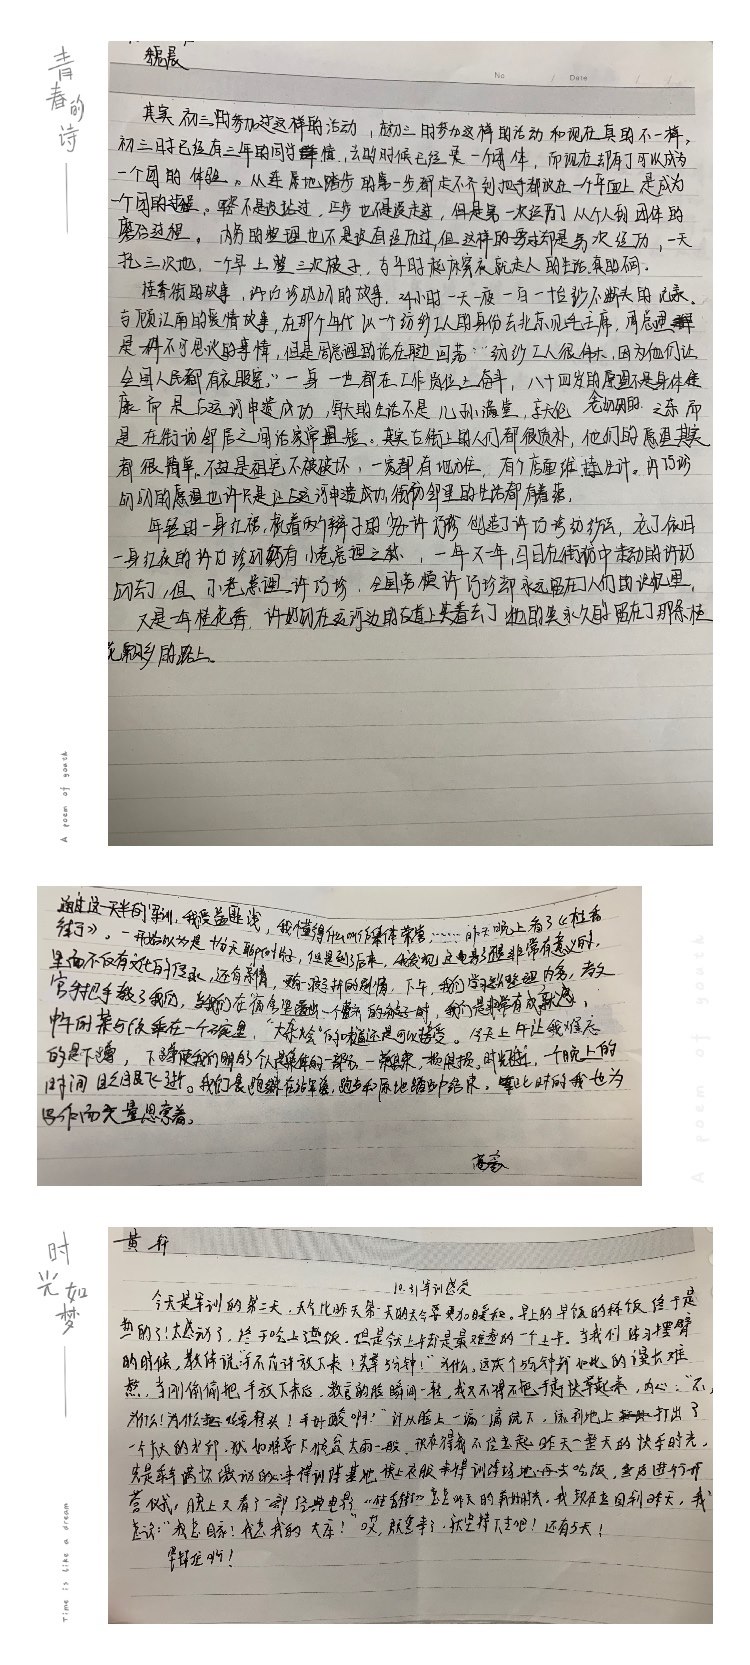 青春的诗
魏晨
No / Date / /
其实初三时参加过这样的活动,在初三时参加这样的活动和现在真的不一样,
初三时已经有三年的同学情,去的时候已经是一个团体,而现在却有了可以成为
一个团的体验。从连原地踏步的第一步都走不齐到把手都放在一个平面上是成为
一个团的过程。不是没站过,正步也不是没走过,但是第一次经历了从个人到团体的
磨合过程。内务的整理也不是没有经历过,但这样的要求却是第一次经历,一天
扫三次地,一个早上整三次被子,与平时起床穿衣就走人的生活真的不同。
桂香街的故事,许巧珍奶奶的故事,24小时一天一夜一百一十位秒不断头的记录。
与顾江南的爱情故事,在那个年代以一个纺纱工人的身份去北京见毛主席,周总理
是一件不可思议的事情,但是周总理的话在耳边回荡:“纺纱工人很伟大,因为他们让
全国人民都有衣服穿。”一身一世都在工作岗位上奋斗,八十四岁的愿望不是身体健
康而是运河申遗成功,每天的生活不是儿孙满堂,享天伦之乐而
是在街访邻居之间话家常里短。其实在街上的人们都很质朴,他们的愿望其实
都很简单。不过是祖宅不被破坏,一家都有地方住,有个店面维持生计。许巧珍
奶奶的愿望也许只是让运河申遗成功,街坊邻里的生活都有着落。
年轻的一身红装,戴着两个辫子的少女许巧珍创造了许巧珍纺纱法,老了依旧
一身红衣的许巧珍奶奶有小巷总理之称,一年又一年,当日在街访中走动的许奶
奶去了,但小巷总理许巧珍,全国劳模许巧珍却永远留在了人们的记忆里。
又是一年桂花香,许奶奶在运河边的石道上笑着去了,她的笑永久的留在了那条桂
花飘香的路上。
A poem of youth
通过这一天半的军训,我受益匪浅,我懂得什么叫作集体荣誉……昨天晚上看了《桂香
街》。一开始以为是十分无聊的片子,但是到了后来,我发现这电影是非常有意义的,
里面不仅有文化的传承,还有亲情,下午,我们学习整理内务,教
官手把手教了我们,当我们在宿舍里叠出一个整齐的被子时,我们是非常有成就感,
中午的菜与饭乘在一个碗里,“大杂烩”的味道还是可以接受。今天上午让我难忘
的是下蹲,下蹲使我们明白个人是集体的一部分,一荣俱荣,一损俱损。时光,一个晚上的
时间眨眼飞逝。我们晨跑在站军姿,跑步和原地踏步中结束,此时的我也为
写作而思索着。
A poem of youth
时光如梦
黄轩
10.31军训感受
今天是军训的第二天,天气比昨天第一天的天气要更加暖和。早上的早饭的稀饭终于是
热的了!太感动了,终于吃上热饭。但是今天上午却是最难熬的一个上午。当我们练习摆臂
的时候,教官说:“手不应许放下来!5分钟!”为什么,这个5分钟却如此的漫长难
熬,当刚偷偷把手放下来后,教官的脸瞬间一转,我又不得不把手赶快拿起来,内心:“不,
为什么!为什么要转头!手好酸啊!”汗从脸上一滴一滴流下,流到地上打出了
一个大大的水印,犹如将要下倾盆大雨一般,现在得我不住想起昨天一整天的快乐时光,
先是乘车满怀激动的心来得训练基地,换上衣服来得训练场地,再去吃饭,然后进行开
营仪式,晚上又看了一部经典电影《桂香街》,想想昨天的美好时光,我现在想回到昨天,我
想说:“我想回家!我想我的大床!”哎,既然来了,就坚持下去吧!还有5天!
坚持住啊!
Time is like a dream